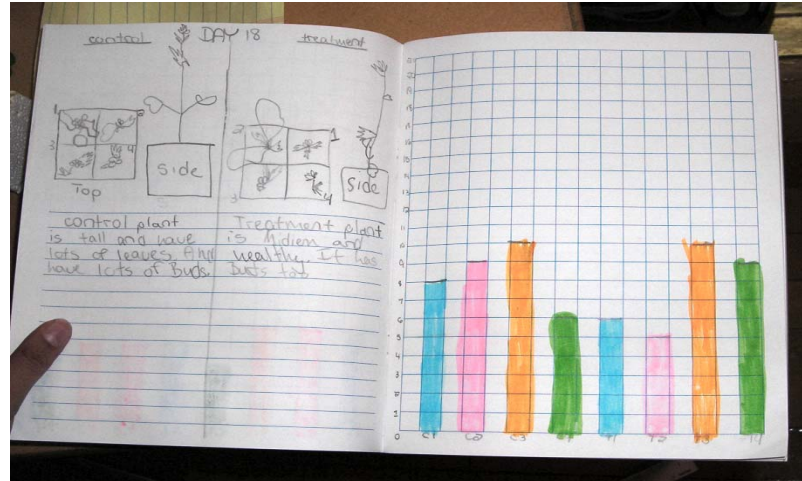 control DAY 18 treatment
1
3 4
Top
side
2 1
3 4
Side
control plant
is tall and have
lots of leaves. And
have lots of Buds.
Treatment plant
is Midiem and
healthy. It has
Buds too
10
9
8
7
6
5
4
3
2
1
0
C1 C2 C3 C4 T1 T2 T3 T4